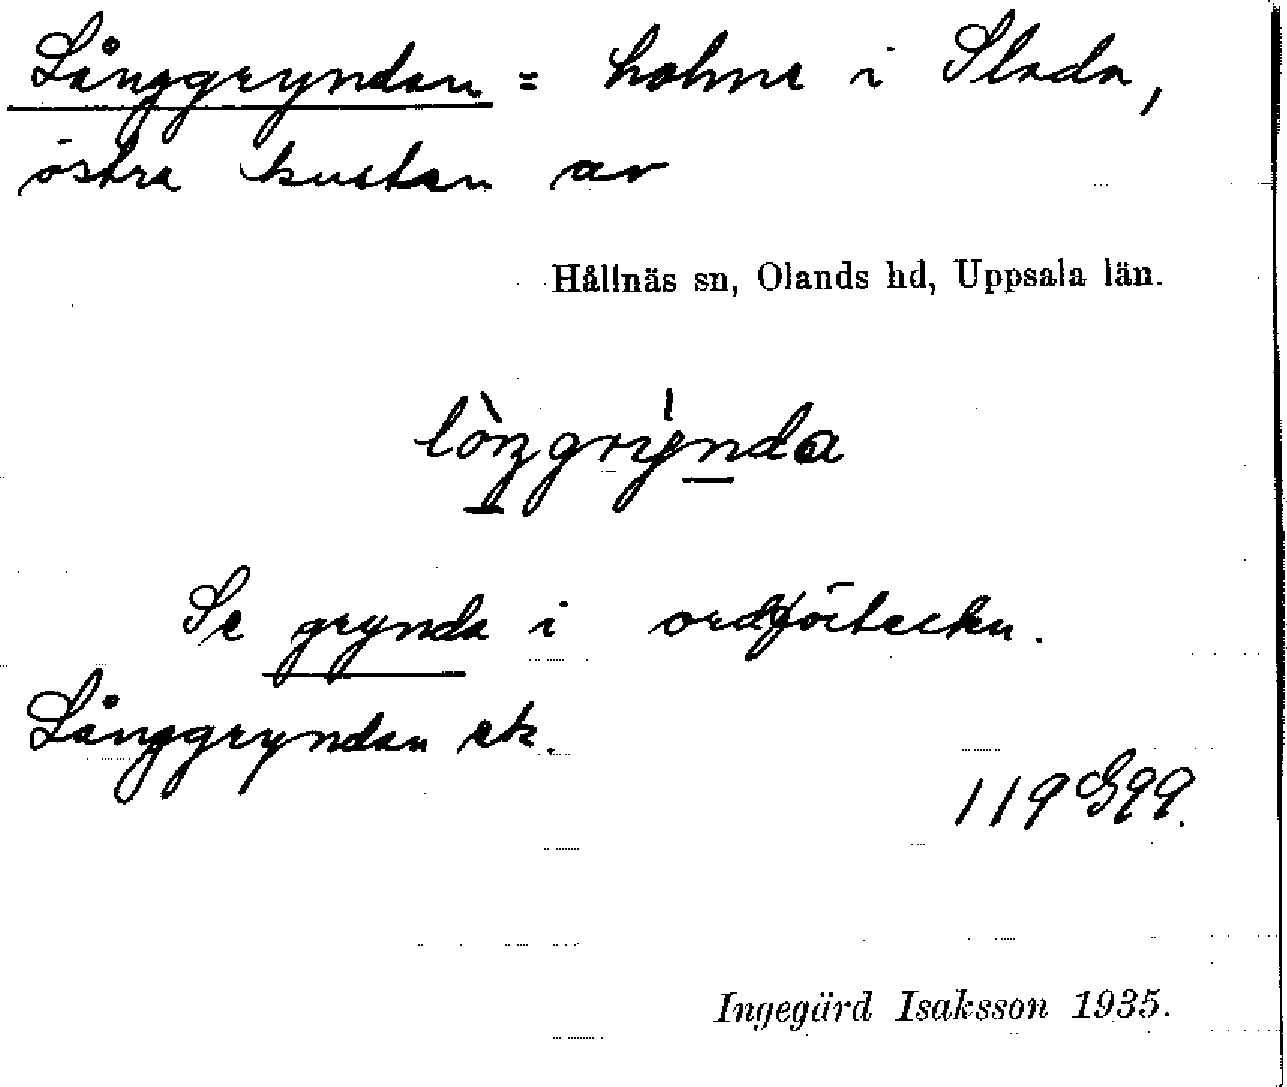 Långgryndan = holme i Slada,
östra kusten av
Hållnäs sn, Olands hd, Uppsala län.
lòŋgrýnda
Se grynda i ordförteckn.
Långgryndan ek.
119 G 99.
Ingegärd Isaksson 1935.